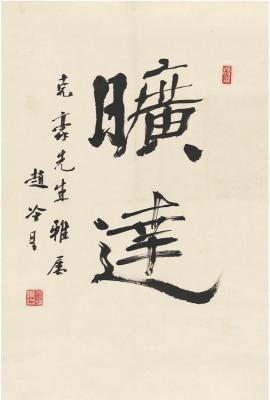 曠達
克森先生雅屬
趙冷月